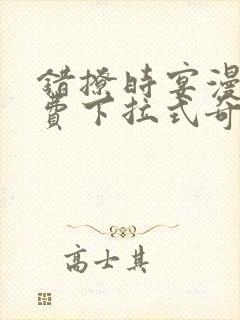 错撩时宴漫
费下拉式奇
高士其